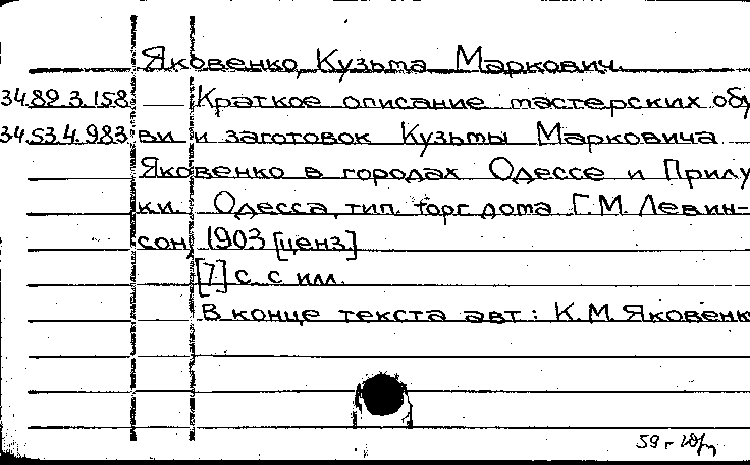 Яковенко, Кузьма Маркович.
34.89.3.158 Краткое описание мастерских обу
34.53.4.983 ви и заготовок Кузьмы Марковича
Яковенко в городах Одессе и Прилу
ки. Одесса, тип. торг. дома Г.М. Левин-
сон, 1903 [ценз.]
[7] с. с илл.
В конце текста авт.: К.М. Яковенк
59 г.